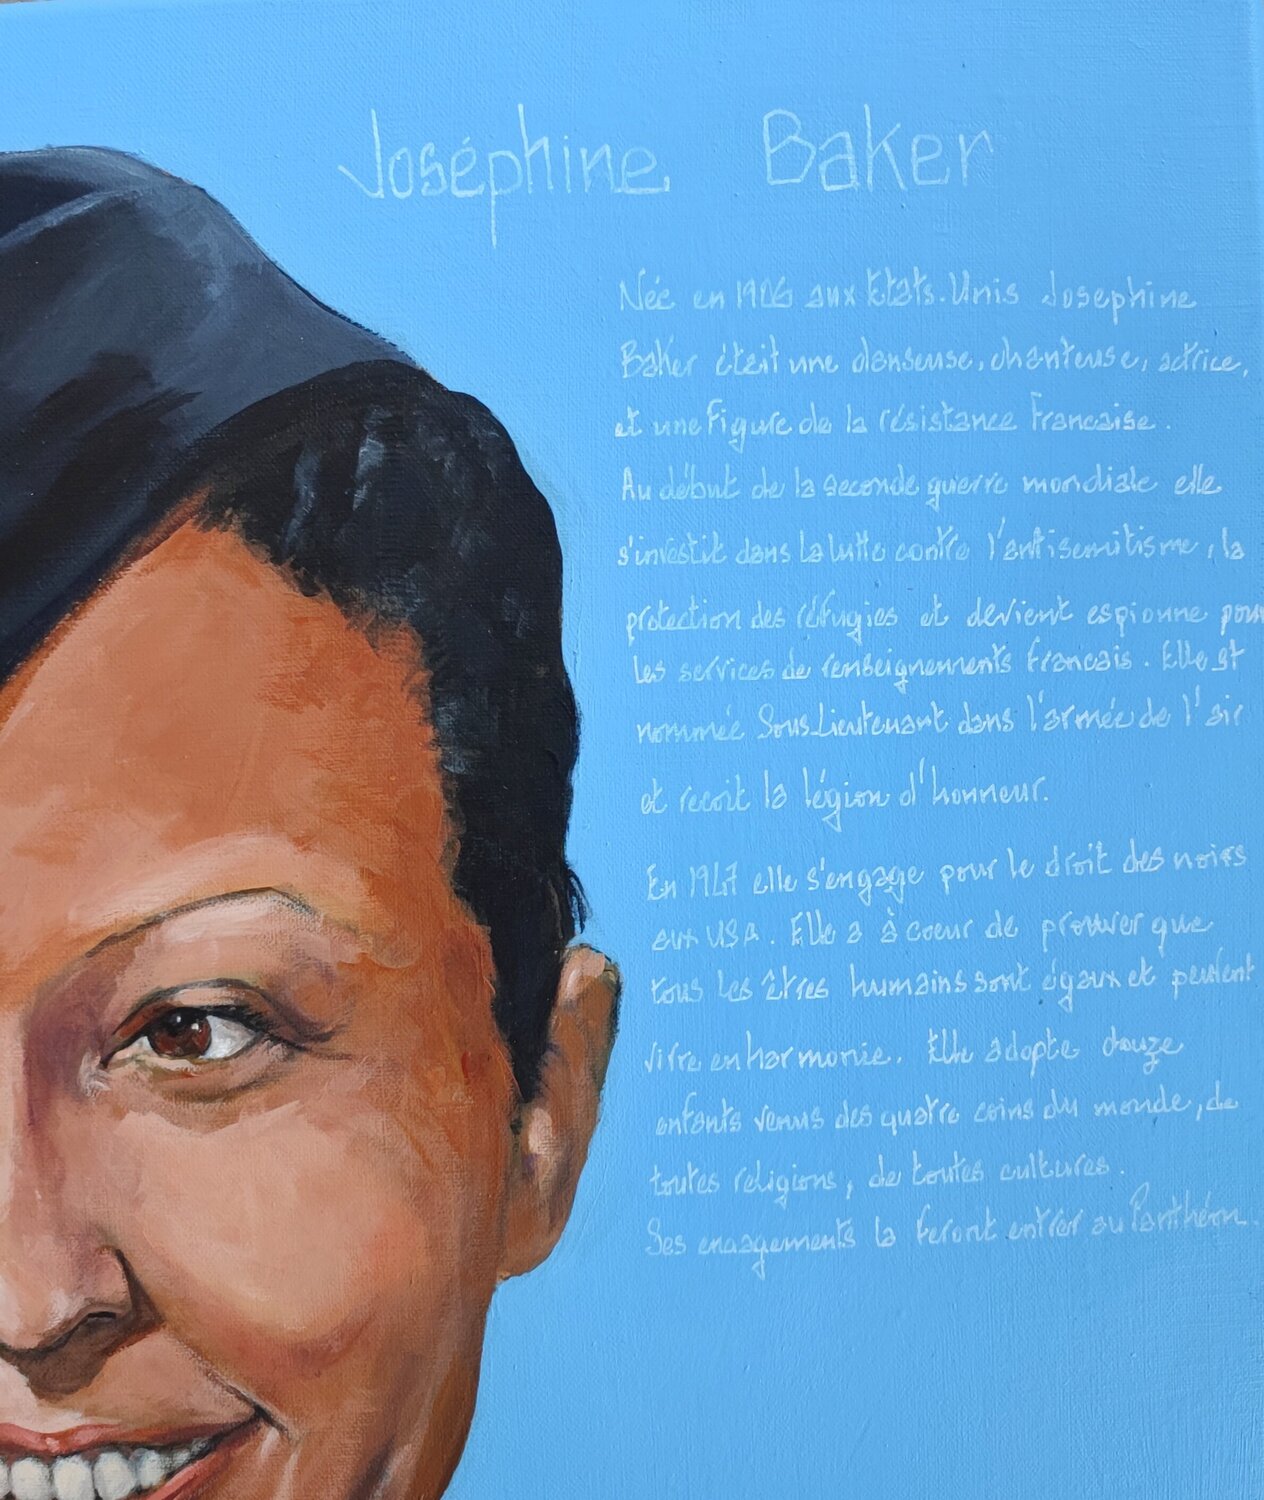 Joséphine Baker
Née en 1906 aux Etats-Unis Josephine
Baker était une danseuse, chanteuse, actrice,
et une figure de la résistance Francaise.
Au début de la seconde guerre mondiale elle
s'investit dans la lutte contre l'antisemitisme, la
protection des réfugies et devient espionne pour
les services de renseignements francais. Elle est
nommée Sous-Lieutenant dans l'armée de l'air
et recoit la légion d'honneur.
En 1947 elle s'engage pour le droit des noirs
aux USA. Elle a à coeur de prouver que
tous les êtres humains sont égaux et peuvent
vivre en harmonie. Elle adopte douze
enfants venus des quatre coins du monde, de
toutes religions, de toutes cultures.
Ses engagements la feront entrer au Panthéon.